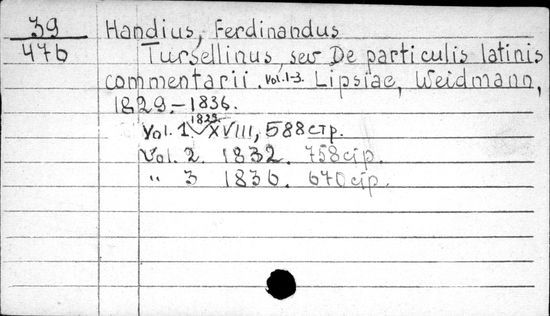 39
476
Handius, Ferdinandus
Tursellinus, seu De particulis latinis
commentarii. Vol. 1-3. Lipsiae, Weidmann,
1829.-1836.
Vol. 1. 1829. XVIII, 588 стр.
Vol. 2. 1832. 758 стр.
" 3 1836. 670 стр.